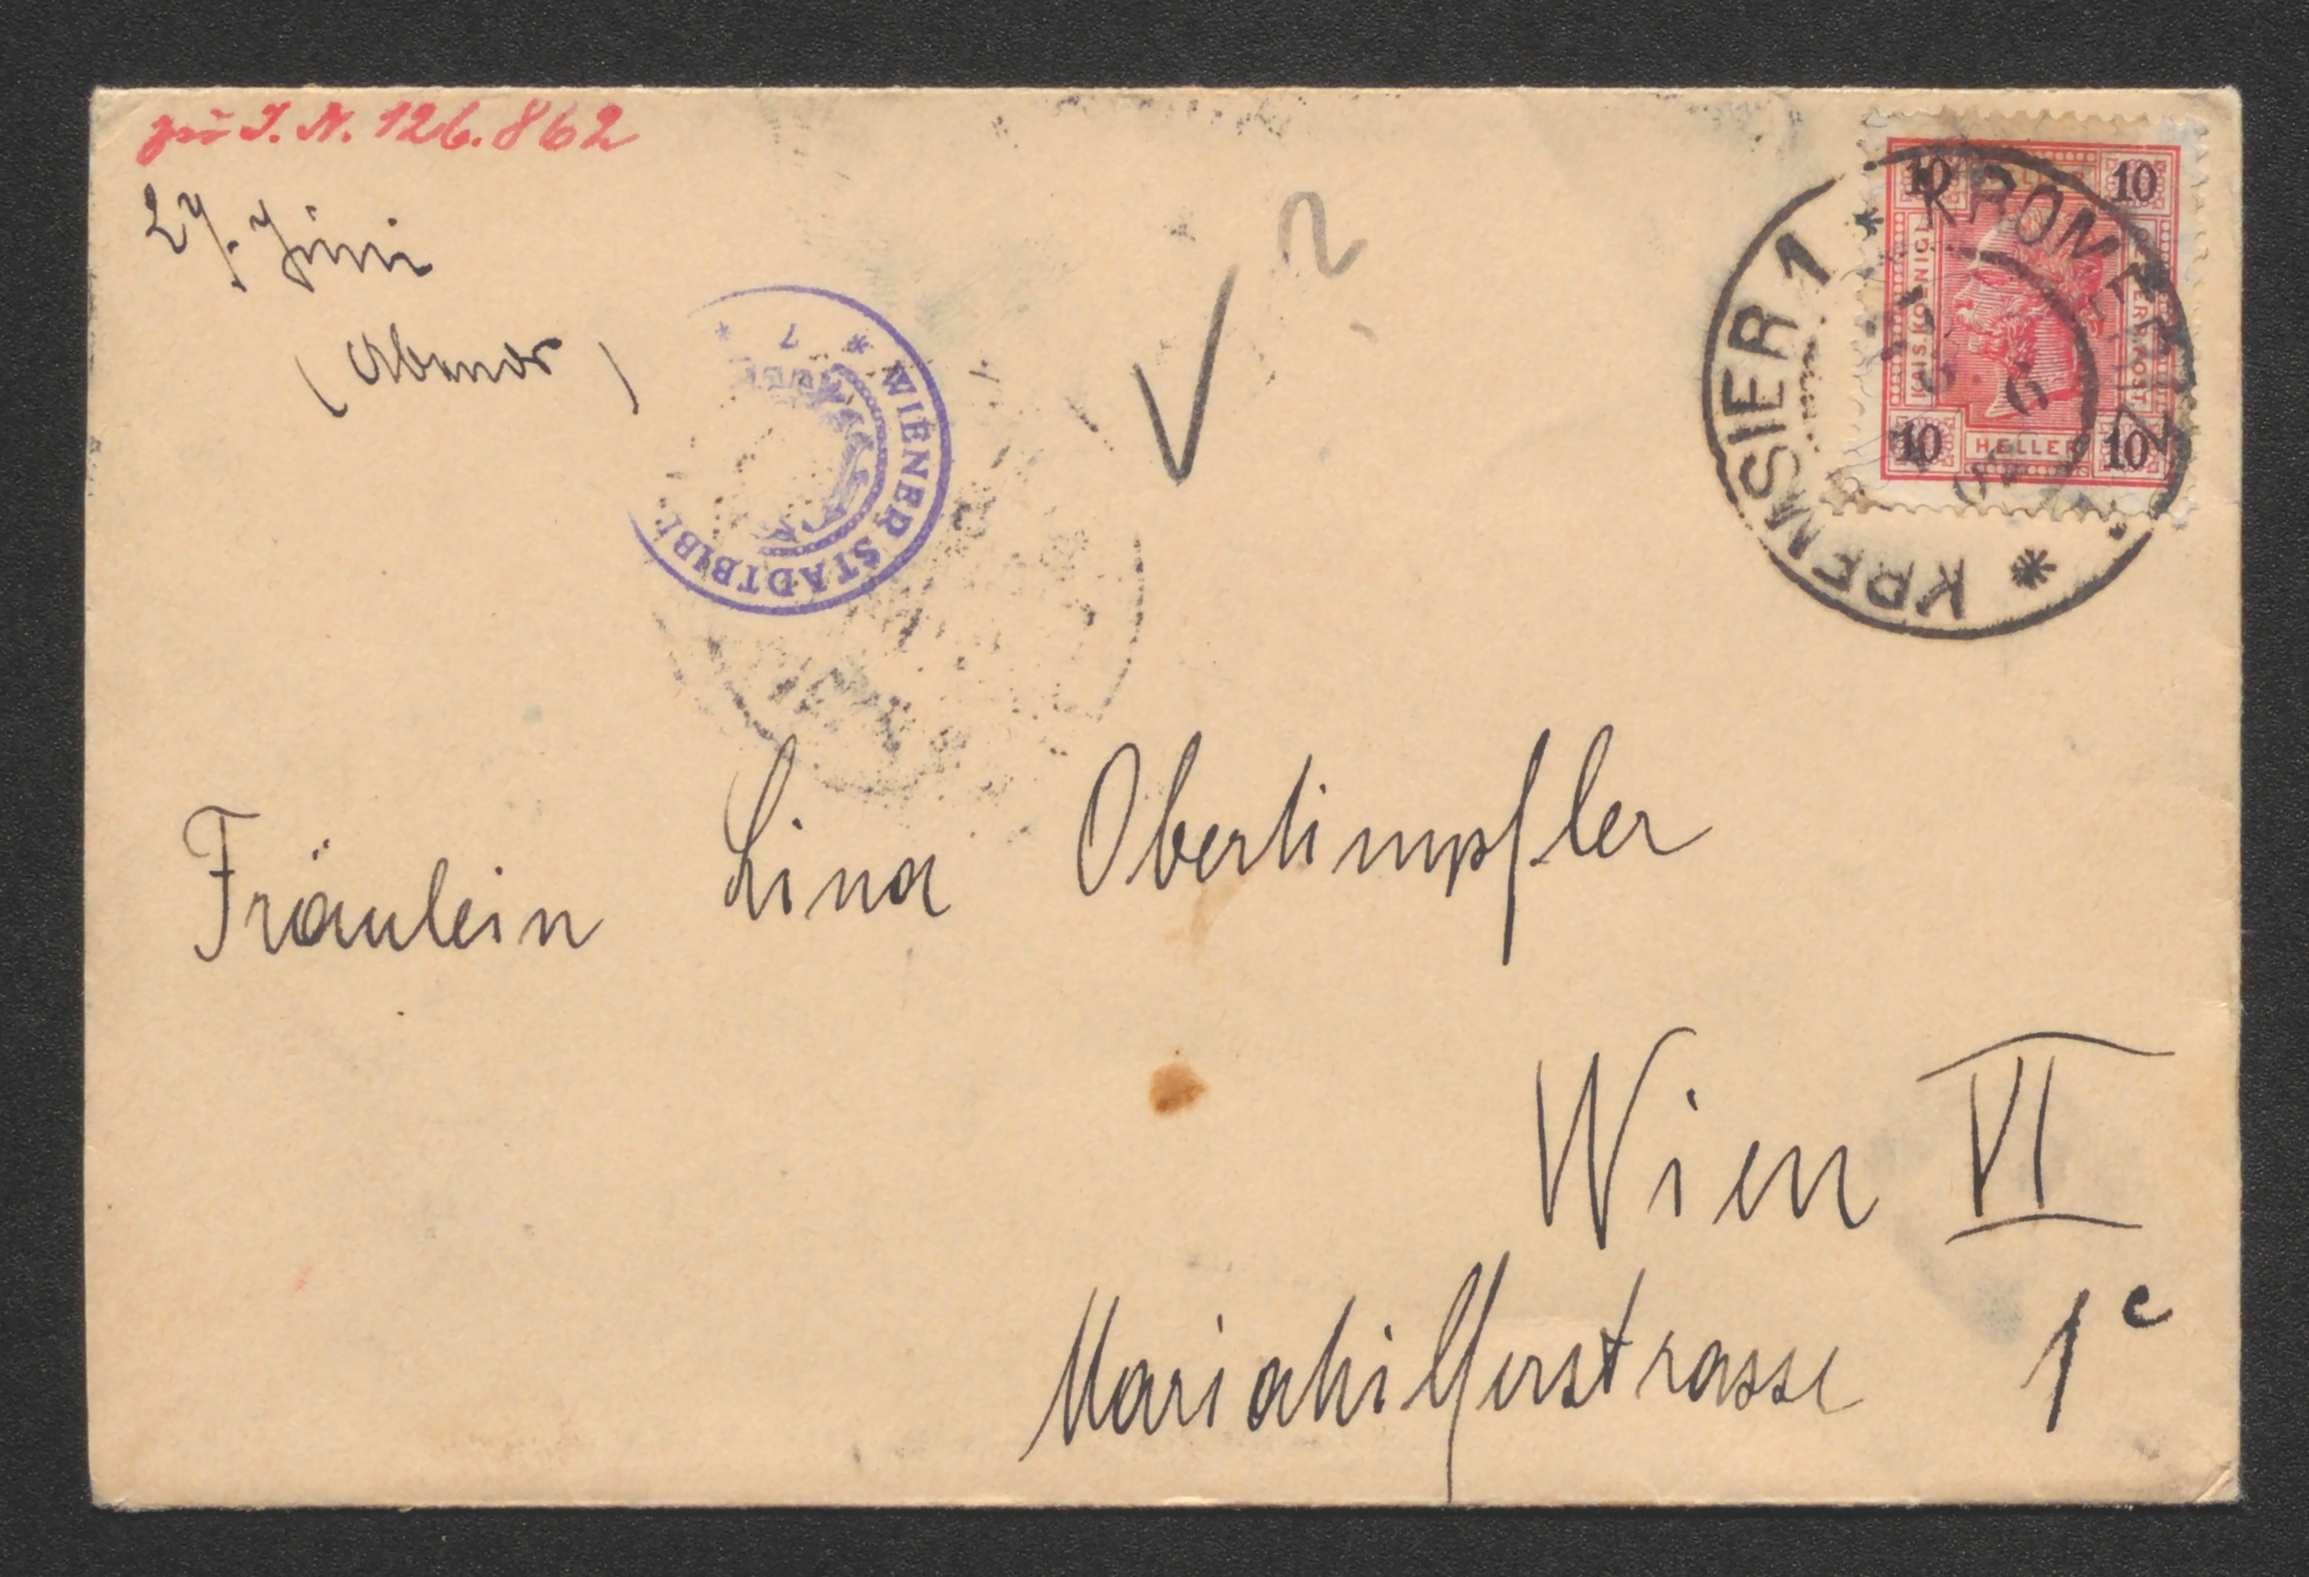 zu I. N. 126.862
27. Juni
(Abends)
WIENER STADTBIBL
* 7 *
KREMSIER 1 * KROMĚŘÍŽ *
10 10
KAIS. KÖNIGL.
10 HELLER 10
Fräulein Lina Obertimpfler
Wien VI
Mariahilferstrasse 1c